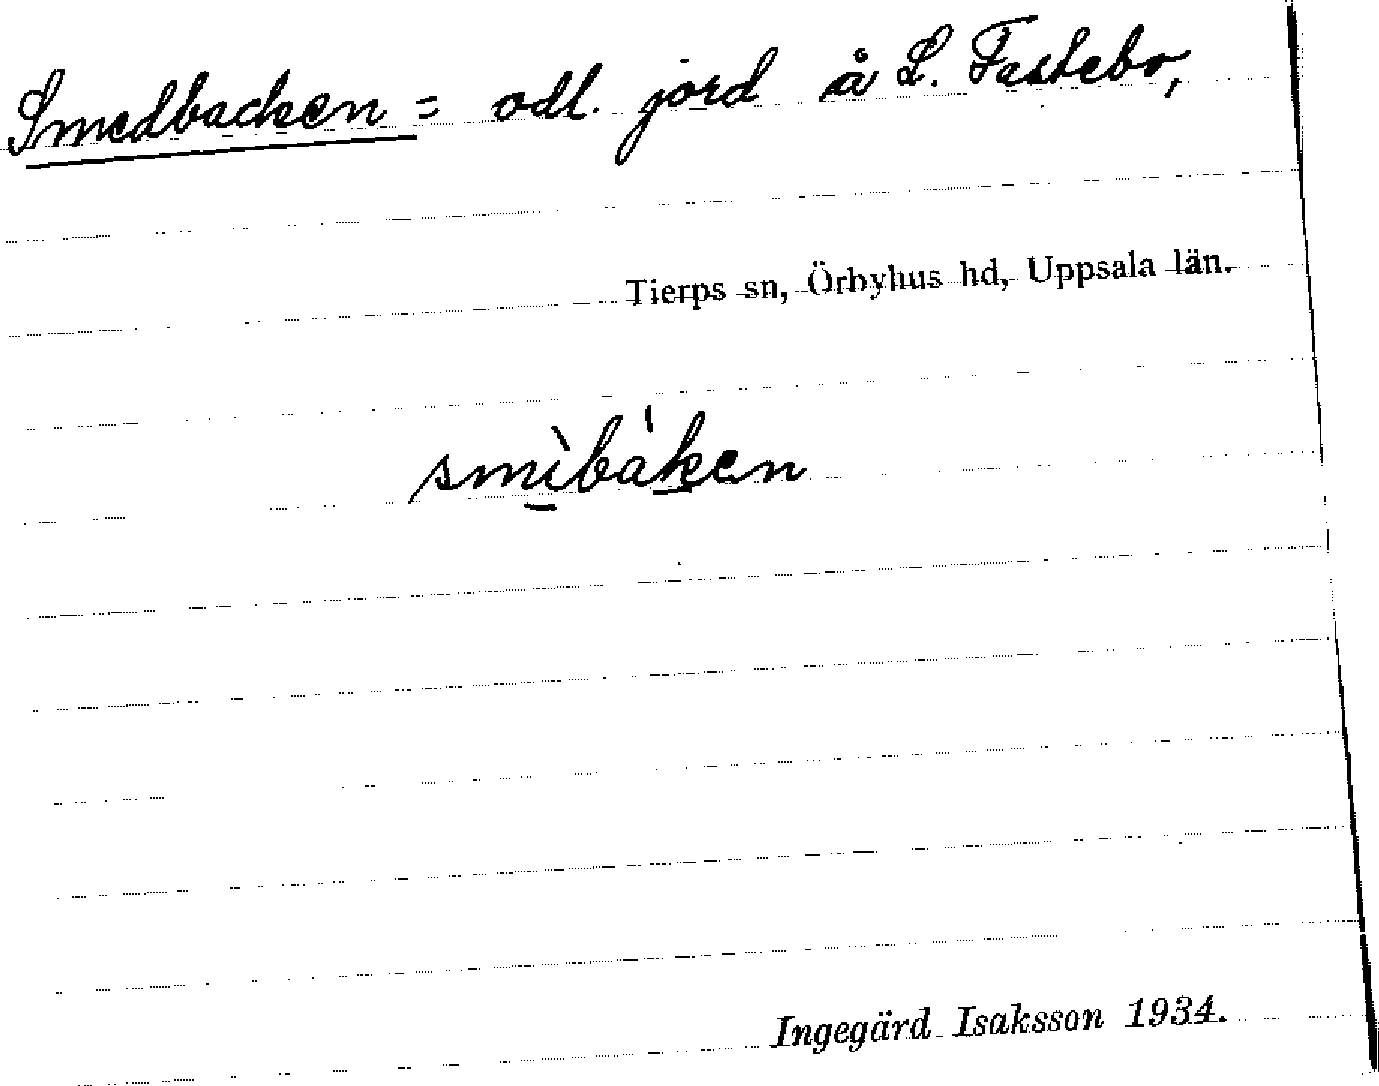 Smedbacken = odl. jord å L. Fastebo,
Tierps sn, Örbyhus hd, Uppsala län.
smìbáken
Ingegärd Isaksson 1934.